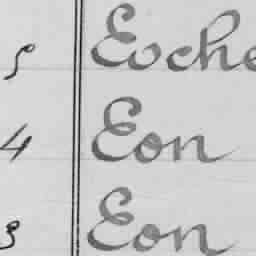 5 Eoche
4 Eon
3 Eon